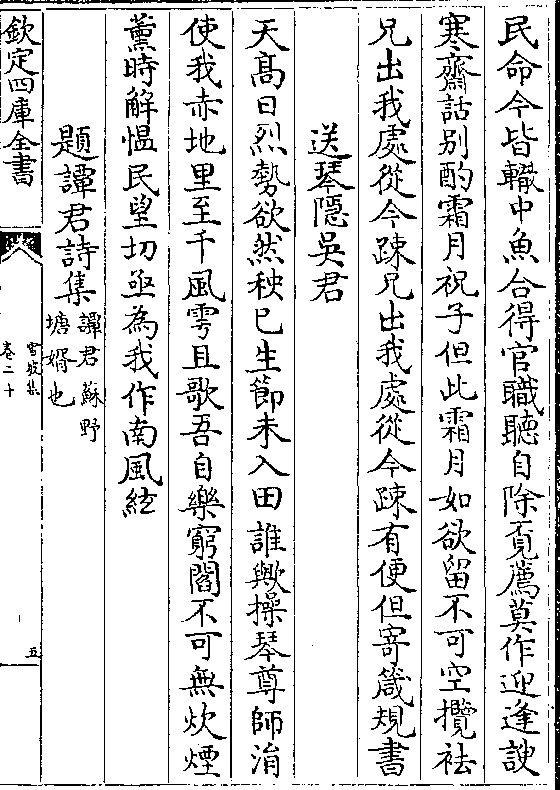 民命今皆轍中魚合得官職聽自除覓薦莫作迎逢諛
寒齋話别酌霜月祝子但此霜月如欲留不可空攬袪
兄出我處從今踈兄出我處從今踈有便但寄箴規書
送琴隠吳君
天髙日烈勢欲然秧已生節未入田誰歟操琴尊師㳙
使我赤地里至千風雩且歌吾自樂窮閻不可無炊煙
薫時解愠民望切亟為我作南風絃
題譚君詩集譚君蘇野
塘婿也
欽定四庫全書
雪坡集
卷二十
五